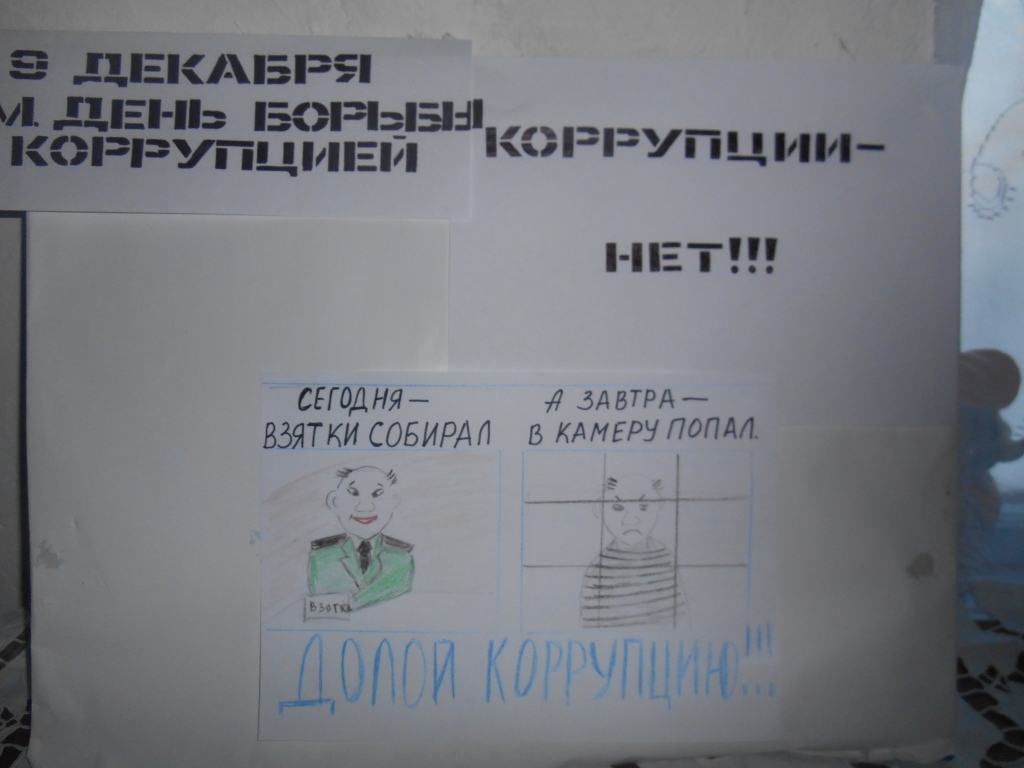 9 ДЕКАБРЯ
М. ДЕНЬ БОРЬБЫ
КОРРУПЦИЕЙ
КОРРУПЦИИ–
НЕТ!!!
СЕГОДНЯ –
ВЗЯТКИ СОБИРАЛ
А ЗАВТРА –
В КАМЕРУ ПОПАЛ.
ВЗЯТКА
ДОЛОЙ КОРРУПЦИЮ!!!